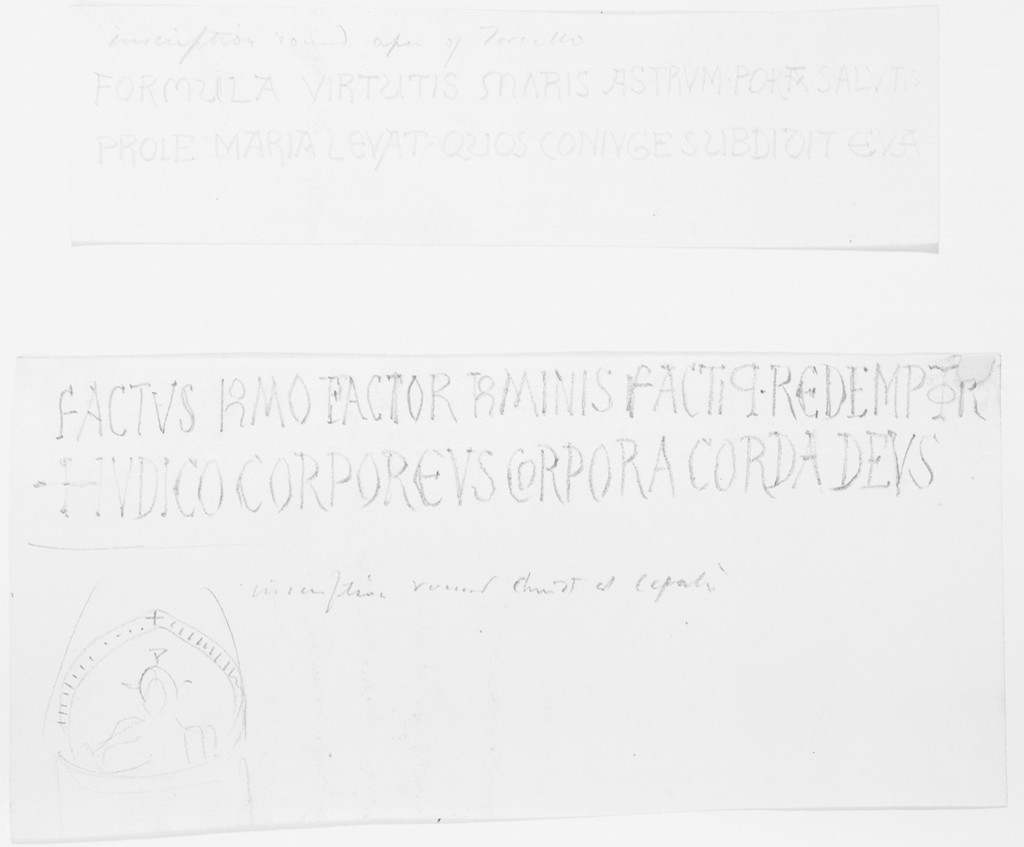 inscription round apse of Torcello
FORMULA VIRTUTIS MARIS ASTRVM·PORTÆ SALVTIS·
PROLE MARIA LEVAT·QUOS CONIVGE SUBDIDIT EVA
FACTVS HOMO FACTOR HOMINIS FACTIQ·REDEMPTOR
IVDICO CORPOREVS CORPORA CORDA DEVS
inscription round Christ at Cefalù